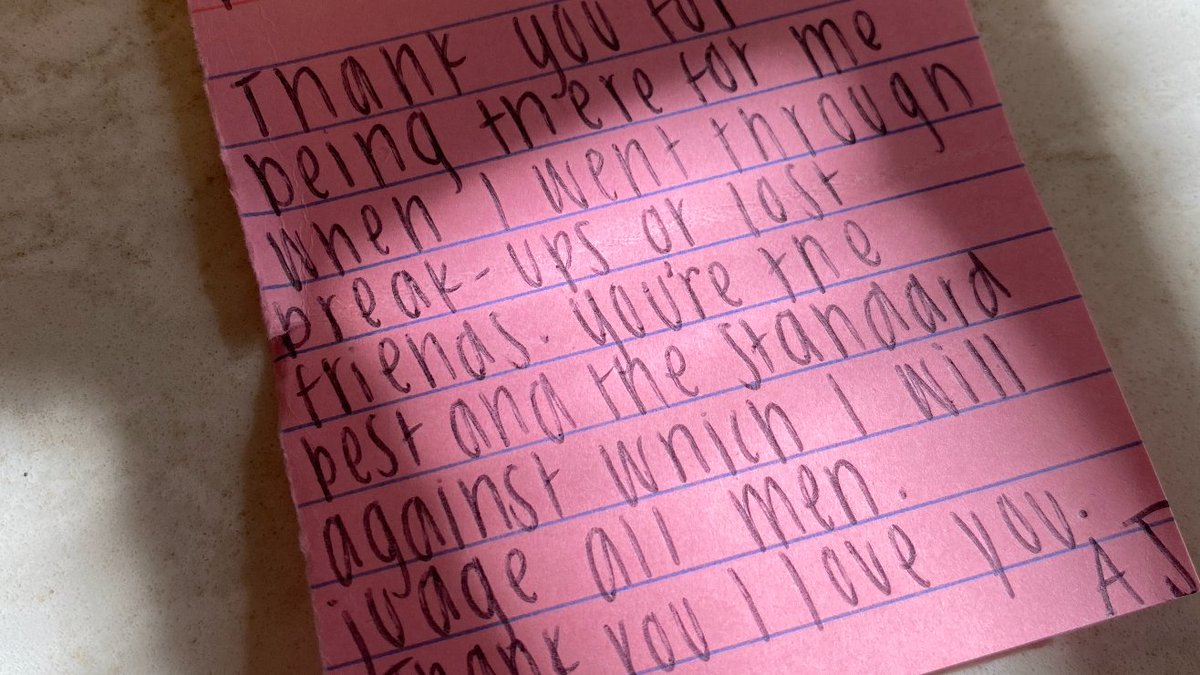 Thank you for
being there for me
when I went through
break-ups or lost
friends. you're the
best and the standard
against which I will
judge all men.
Thank you I love you.
AJ